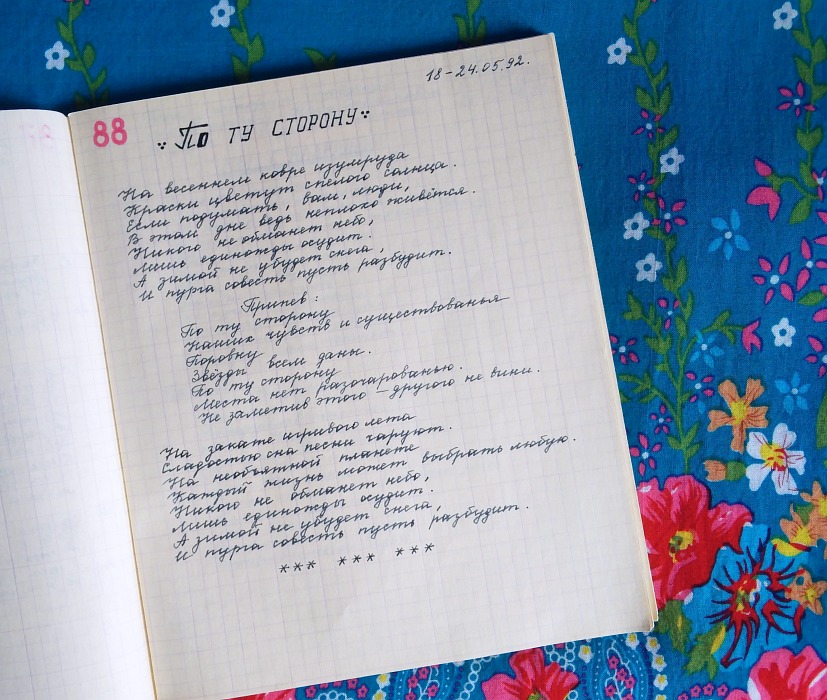 18-24.05.92.
88
По ту сторону
На весеннем ковре изумруда
Краски цветут спелого солнца.
Если подумать, вам, люди,
В этом дне ведь неплохо живётся.
Никого не обманет небо,
Лишь единожды осудит.
А зимой не убудет снега,
И пурга совесть пусть разбудит.
Припев:
По ту сторону
Наших чувств и существованья
Поровну
Звёзды всем даны.
По ту сторону
Места нет разочарованью.
Не заметив этого – другого не вини.
На закате игривого лета
Сладостью сна песни чаруют.
На необъятной планете
Каждый жизнь может выбрать любую.
Никого не обманет небо,
Лишь единожды осудит.
А зимой не убудет снега,
И пурга совесть пусть разбудит.
*** *** ***